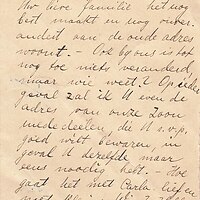 Uw lieve familie het nog
best maakt en nog onver-
anderd aan de oude adres
woont. - Ook bij ons is tot
nog toe niets veranderd,
maar wie weet? Op ieder
geval zal ik U even de
adres van onze zoon
mededeelen, die U s.v.p.
goed wilt bewaren, in
geval U dezelfde maar
eens noodig hebt. - Hoe
gaat het met Carla lief en
met